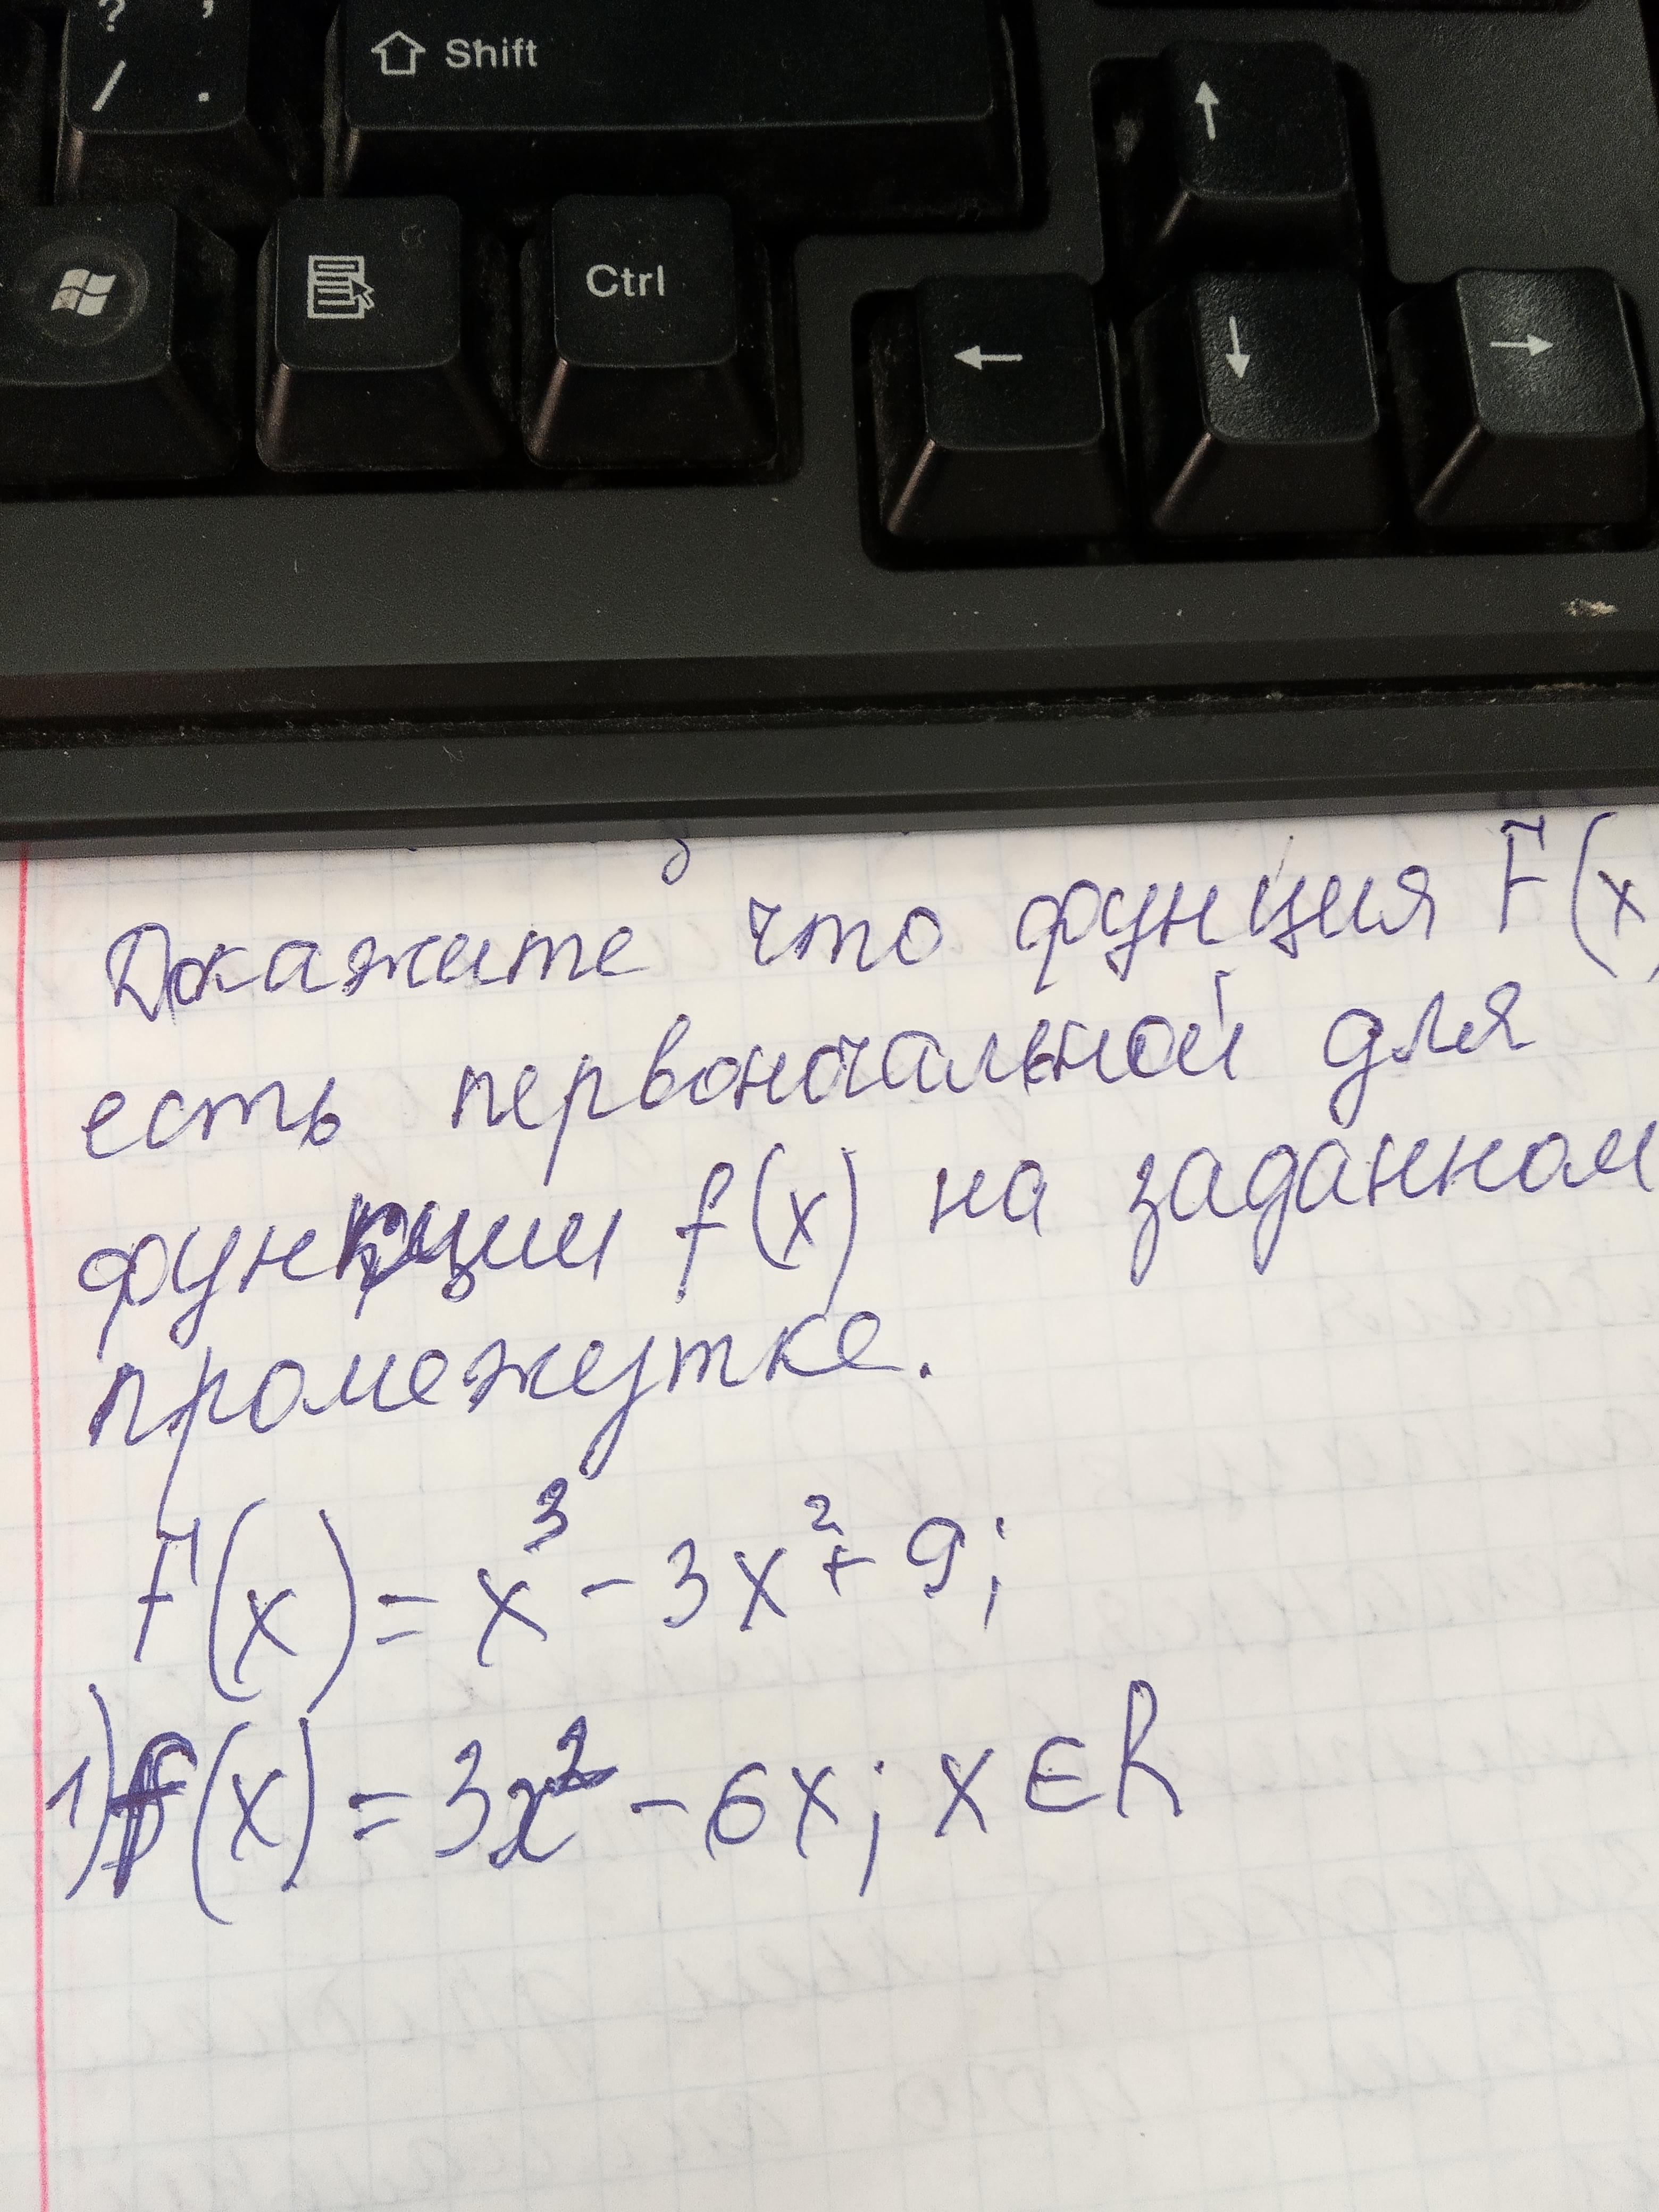 ? ,
/ .
Shift
Ctrl
Докажите что фунция F(x)
есть первоначальной для
функции f(x) на заданном
промежутке.
F(x) = x³ - 3x² + 9;
1) f(x) = 3x² - 6x; x ∈ R